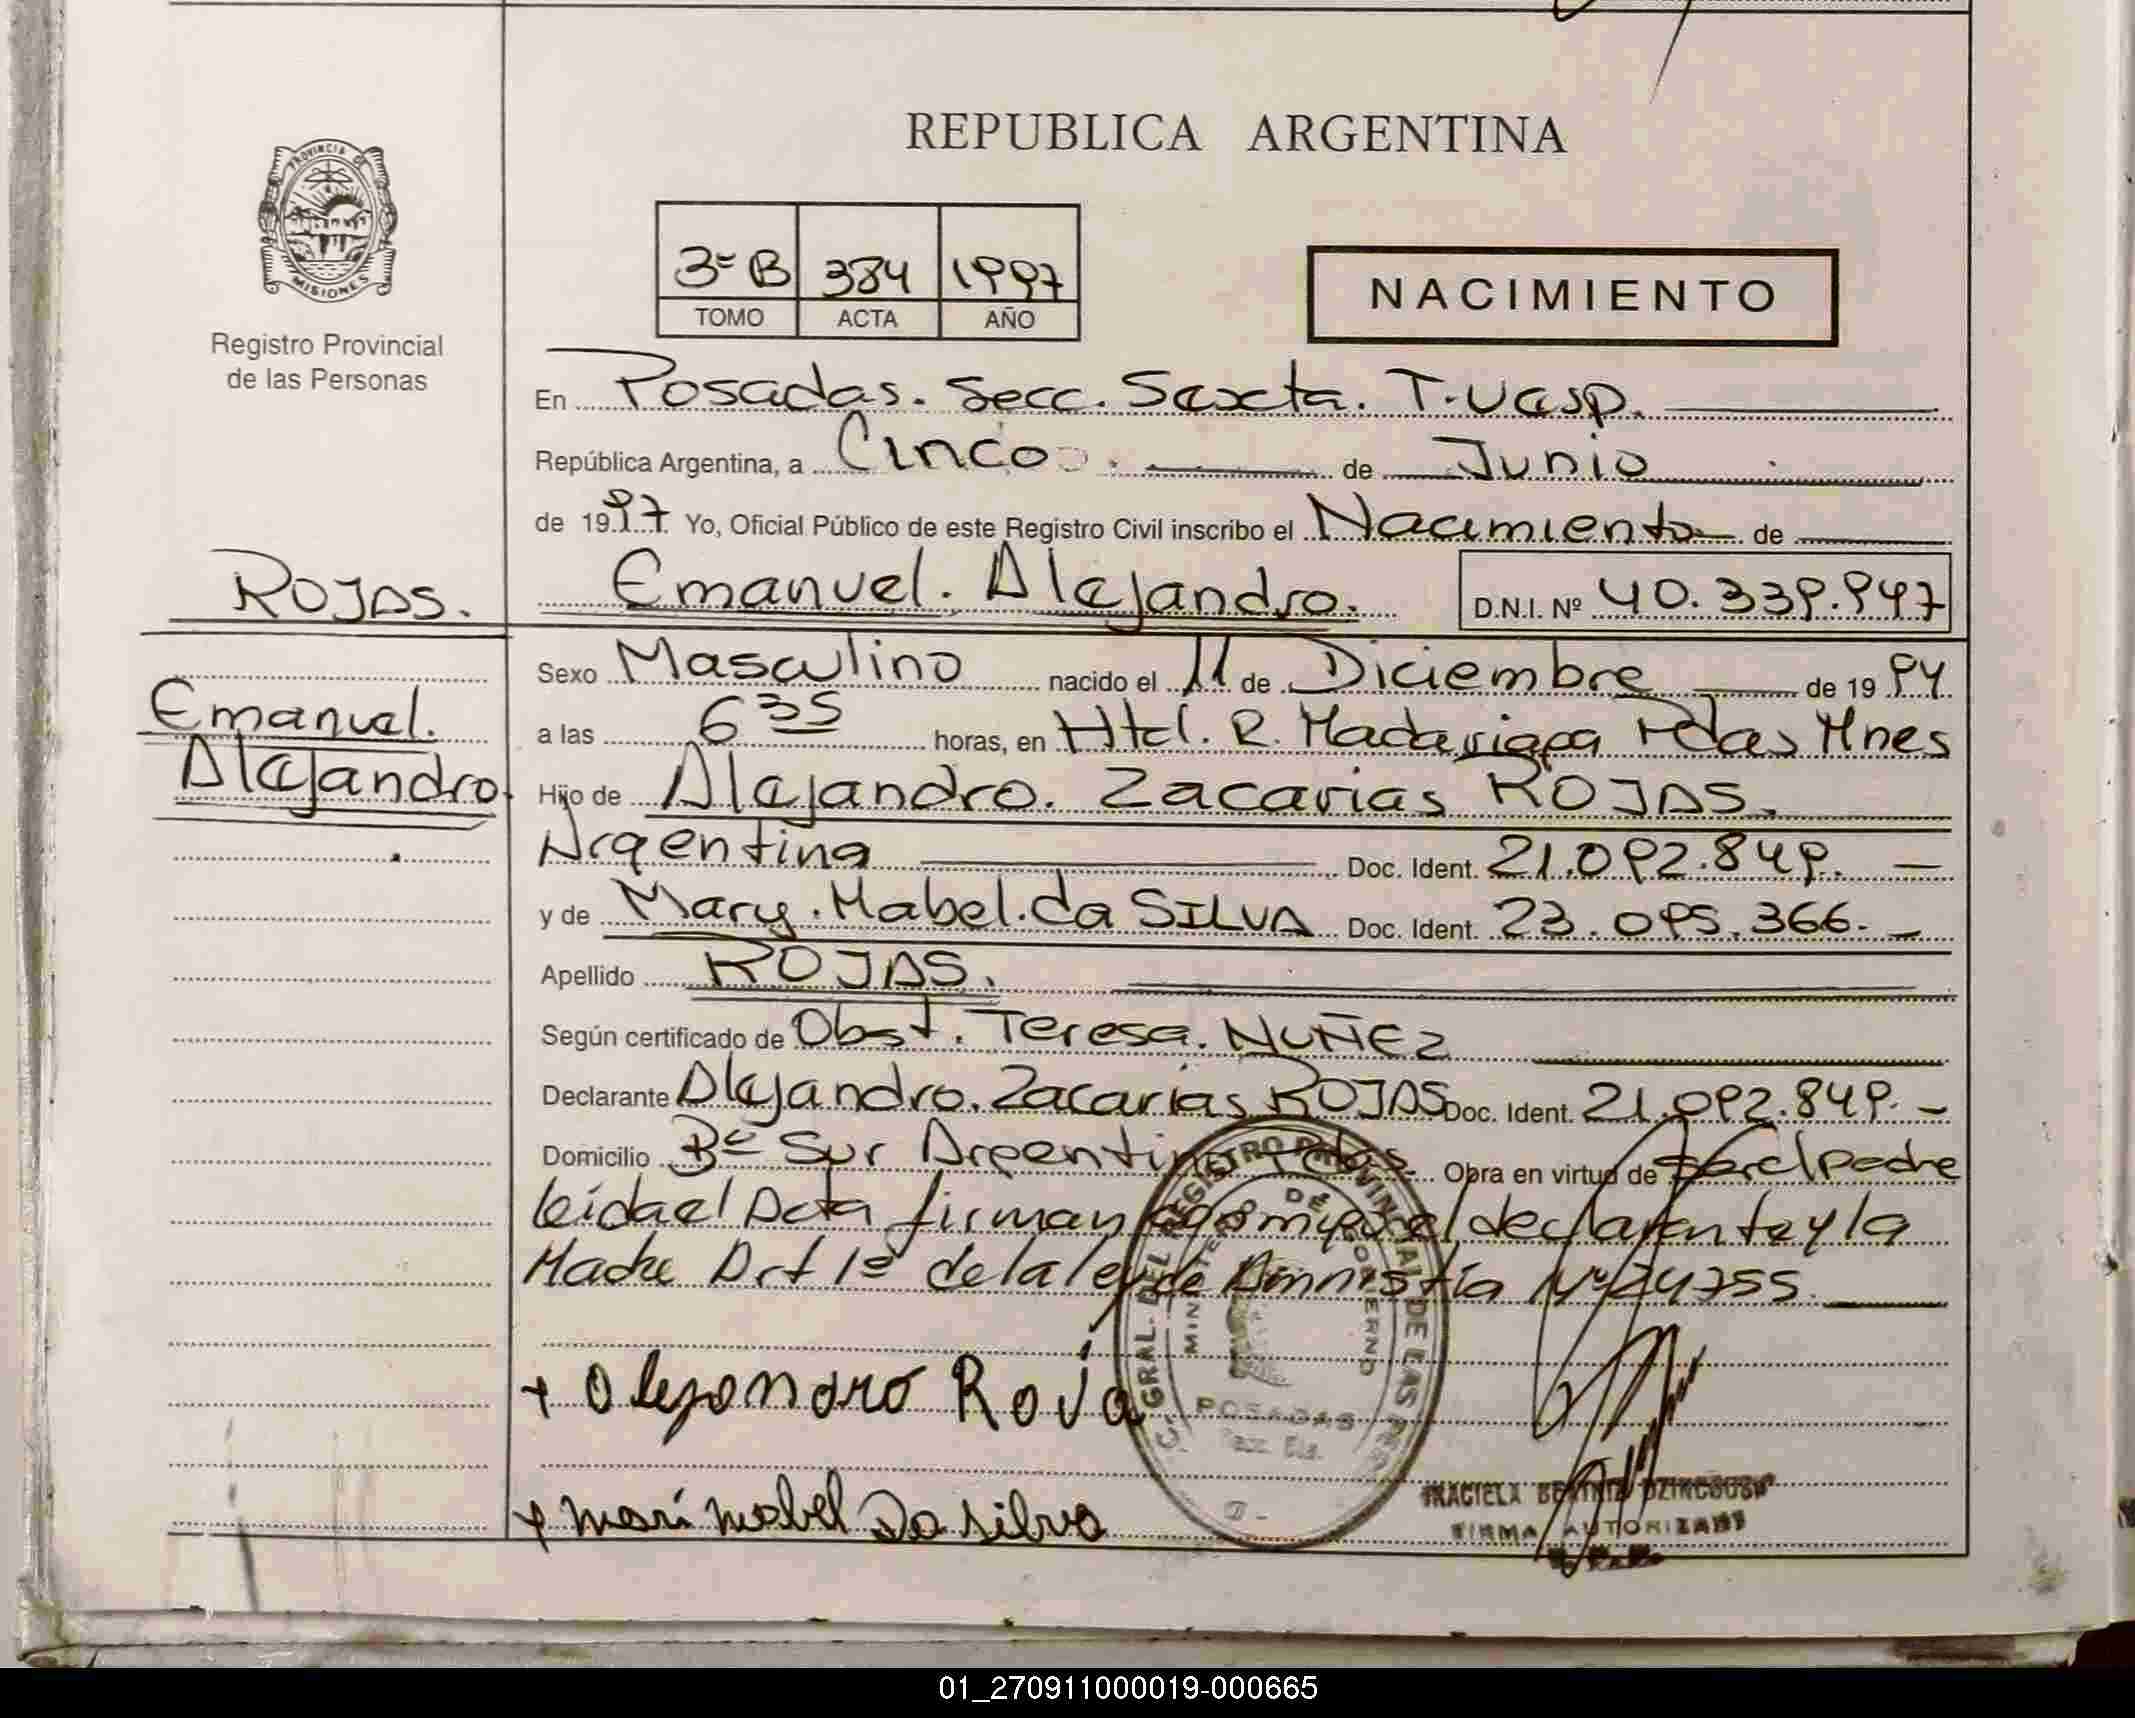 REPUBLICA ARGENTINA
PROVINCIA DE
MISIONES
Registro Provincial
de las Personas
3º B 384 1997
TOMO ACTA AÑO
NACIMIENTO
En Posadas. Secc. Sexta. T.
República Argentina, a Cinco. de Junio
de 1997 Yo, Oficial Público de este Registro Civil inscribo el Nacimiento de
ROJAS.
Emanuel. Alejandro. D.N.I. Nº 40.339.947
Emanuel.
Alejandro.
Sexo Masculino nacido el 11 de Diciembre de 19 94
a las 6 35 horas, en Htal. R. Madariaga Pdas Mnes
Hijo de Alejandro. Zacarias ROJAS.
Argentina Doc. Ident. 21.092.849. —
y de Mary. Mabel. da SILVA Doc. Ident. 23.095.366. —
Apellido ROJAS.
Según certificado de Obst. Teresa. NUÑEZ
Declarante Alejandro. Zacarias ROJAS Doc. Ident. 21.092.849. —
Domicilio Bº Sur Argentino Pdas. Obra en virtud de ser el padre
leida el Acta firman conmigo el declarante y la
Madre Art 1º de la ley de Amnistía Nº 24755.
+ Alejandro Roja
+ mari mabel Da silva
GRAL. DEL REGISTRO PROVINCIAL DE LAS PER
MINISTERIO DE GOBIERNO
POSADAS
FIRMA AUTORIZADA
01_270911000019-000665